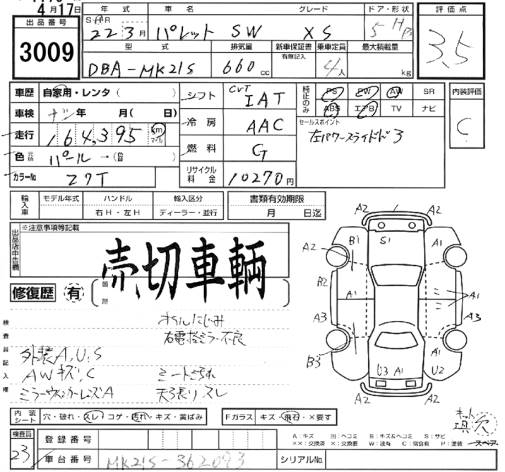 4月17日
出品番号 3009
年式 車名 グレード ドア・形状 評価点
22 3月 パレット SW XS 5 H 3.5
型式 排気量 新車保証書 乗車定員 最大積載量
有無記入
DBA-MK21S 660cc 4人 kg
車歴 自家用・レンタ( ) シフト CVT IAT 純正のみ PS PW AW SR 内装評価
ABS エアB TV ナビ C
車検 ナシ 年 月( )日( ) 冷房 AAC セールスポイント
走行 164,395 km マイル 左パワースライドド3
色 パール→( ) 燃料 G
カラーNo Z7T リサイクル料金 10270円
輸入車 モデル年式 ハンドル 輸入区分 書類有効期限
右H・左H ディーラー・並行 月 日迄
出品店申告 ※注意事項等記載
売切車輌
修復歴 有
箇所
検査員記入欄
オイルにじみ
右電格ミラー不良
外装A,U,S
AWキズ,C シートこすれ
ミラーウィンカーレンズA 天張りスレ
A2 1 A2
A2 B1 S1 A1 A2
A2 A1 A1
A3 A1 A3
B3 U3 A1 U2
内装シート 穴・破れ・スレ・コゲ・汚れ・キズ・黄ばみ Fガラス キズ・飛石・×要す
検査員 23
登録番号
車台番号 MK21S-362093 シリアルNo.
A:キズ U:ヘコミ B:キズ&ヘコミ S:サビ